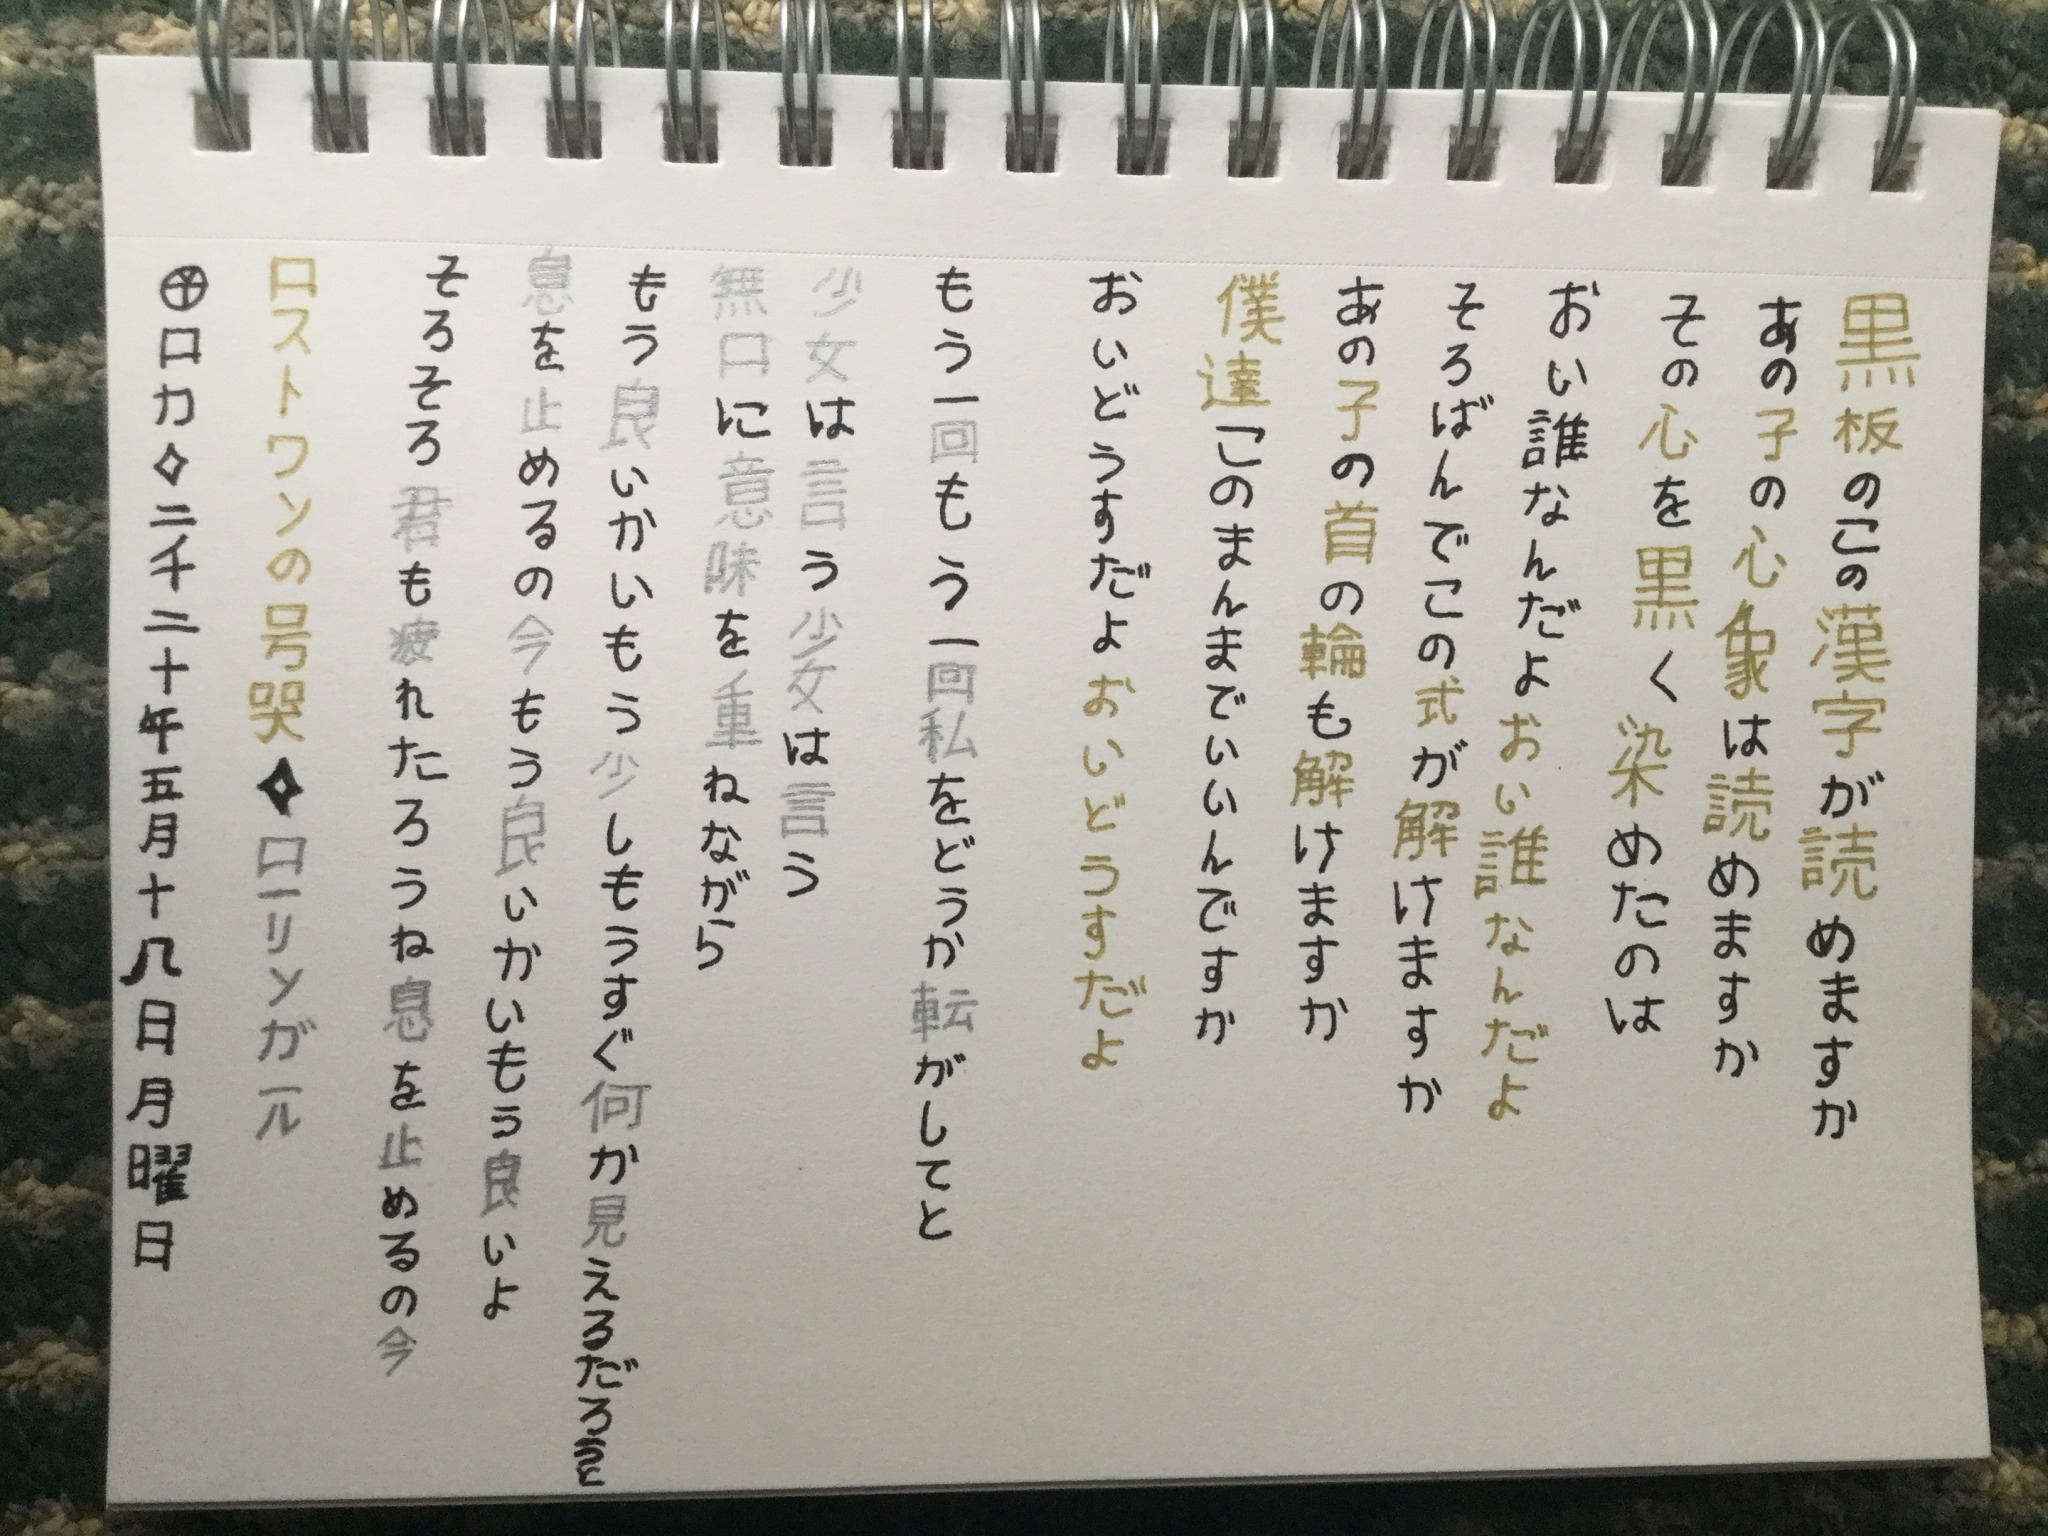 黒板のこの漢字が読めますか
あの子の心象は読めますか
その心を黒く染めたのは
おい誰なんだよおい誰なんだよ
そろばんでこの式が解けますか
あの子の首の輪も解けますか
僕達このまんまでいいんですか
おいどうすだよおいどうすだよ
もう一回もう一回私をどうか転がしてと
少女は言う少女は言う
無口に意味を重ねながら
もう良いかいもう少しもうすぐ何か見えるだろうと
息を止めるの今もう良いかいもう良いよ
そろそろ君も疲れたろうね息を止めるの今
ロストワンの号哭◆ローリンガール
⊕ロカ◇二千二十年五月十八日月曜日